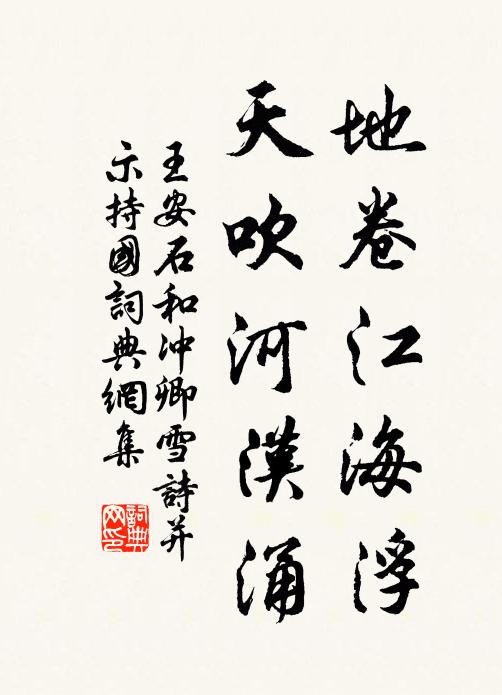 地卷江海浮
天吹河漢涌
王安石和沖卿雪詩并
示持國詞典網集
詞典网印